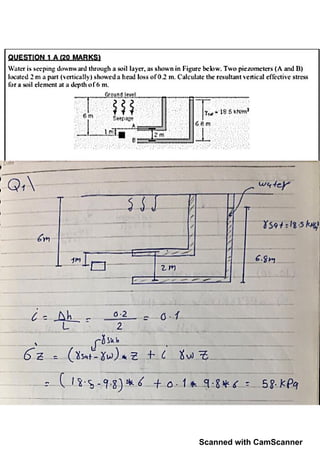 QUESTION 1 A (20 MARKS)
Water is seeping downward through a soil layer, as shown in Figure below. Two piezometers (A and B)
located 2 m a part (vertically) showed a head loss of 0.2 m. Calculate the resultant vertical effective stress
for a soil element at a depth of 6 m.
Ground level
6 m
Seepage
γsat = 18.5 kN/m³
A
1 m
2 m
6.8 m
B
Q1\
water
γsat=18.5 kN/
6m
1m
2 m
6.8m
i = Δh/L = 0.2/2 = 0.1
γsub
σ'z = (γsat-γw)*z + i γw z
= (18.5-9.8)*6 + 0.1*9.8*6 = 58. kPa
Scanned with CamScanner